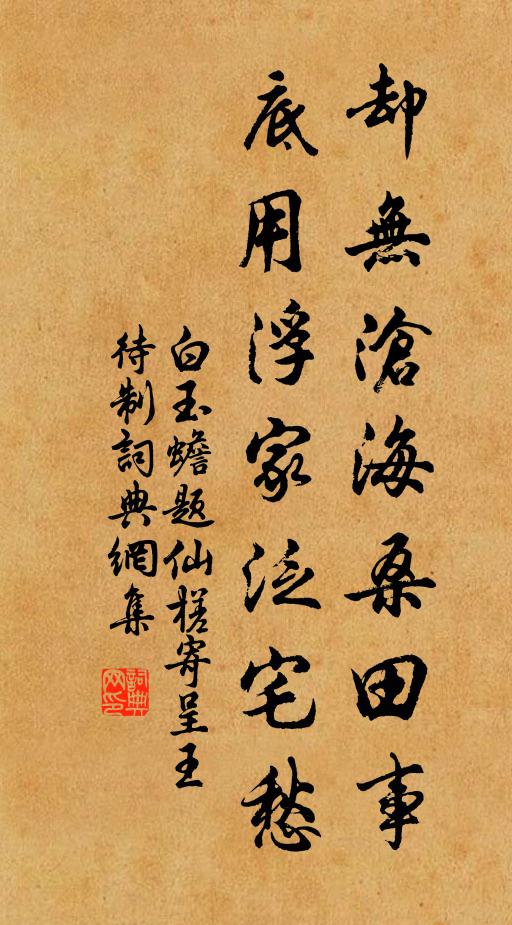 却無滄海桑田事
底用浮家泛宅愁
白玉蟾题仙槎寄呈王
待制詞典網集
詞典
网印